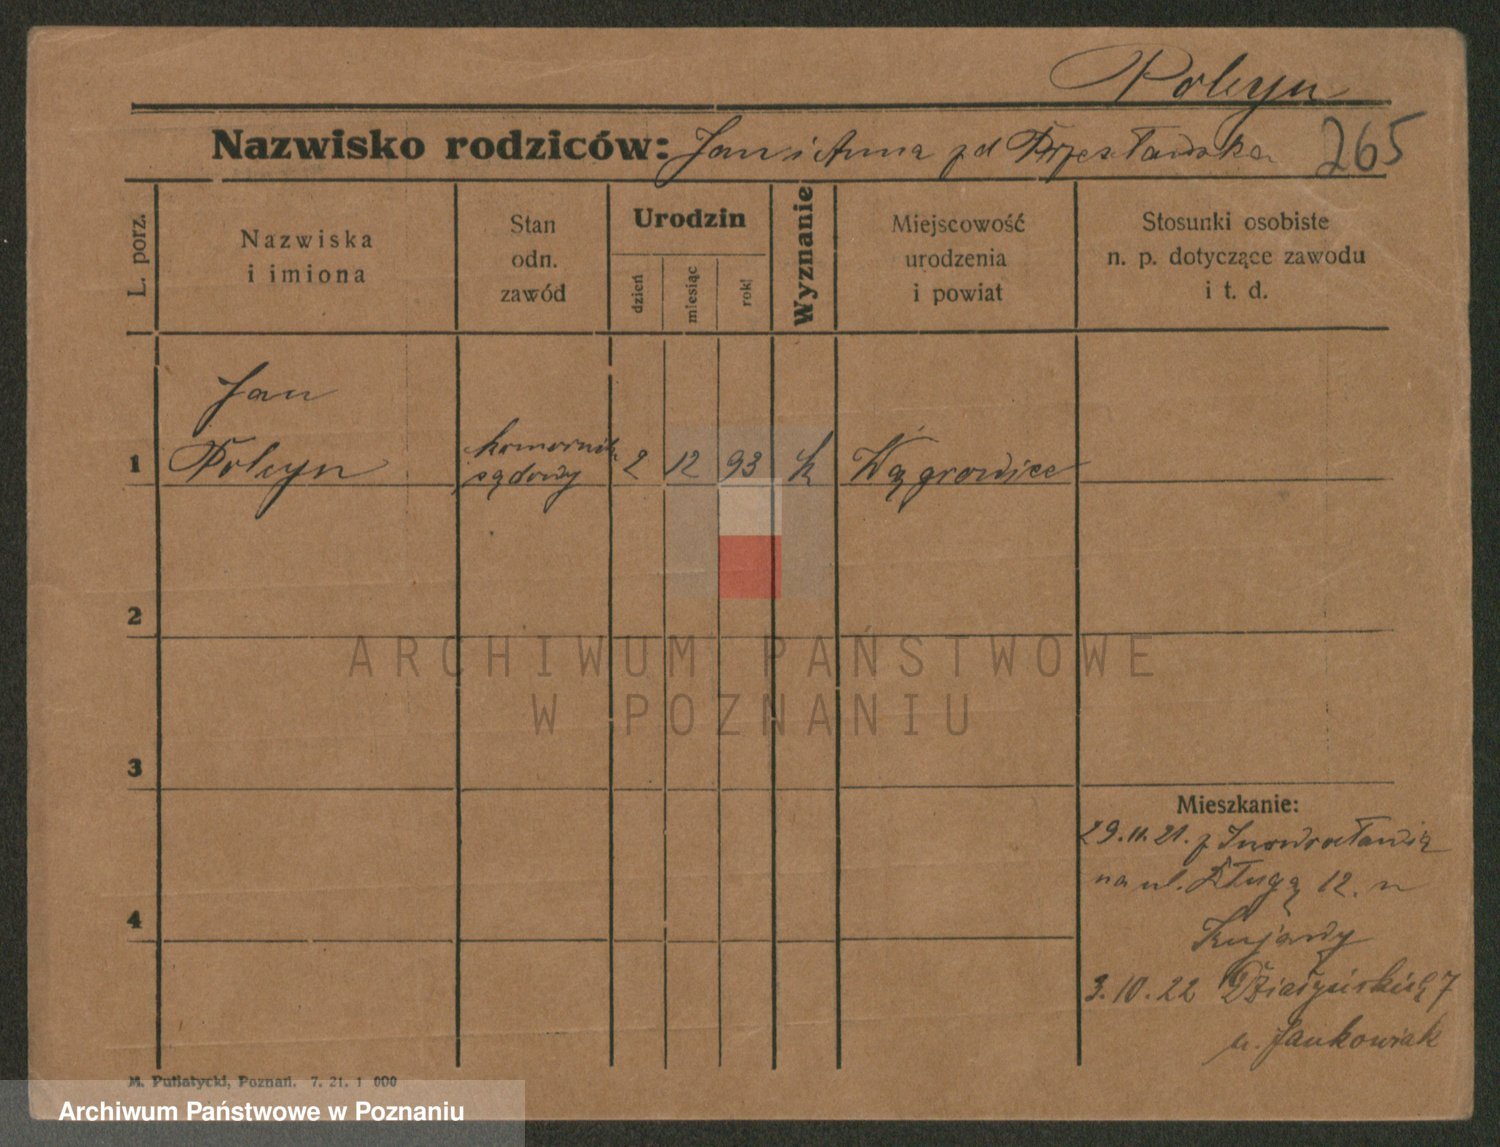 Polcyn
Nazwisko rodziców: Jan i Anna zd Przesławska 265
L. porz.
Nazwiska
i imiona
Stan
odn.
zawód
Urodzin
dzień
miesiąc
rok
Wyznanie
Miejscowość
urodzenia
i powiat
Stosunki osobiste
n. p. dotyczące zawodu
i t. d.
Jan
1 Polcyn komornik sądowy 2 12 93 k Wągrowiec
2
ARCHIWUM PAŃSTWOWE
W POZNANIU
3
Mieszkanie:
29.11.21. z Inowrocławia
na ul. Długą 12. u
4
Kujawy
3.10.22 Działyńskich 7
u. Jankowiak
M. Putiatycki, Poznań. 7. 21. 1 000
Archiwum Państwowe w Poznaniu